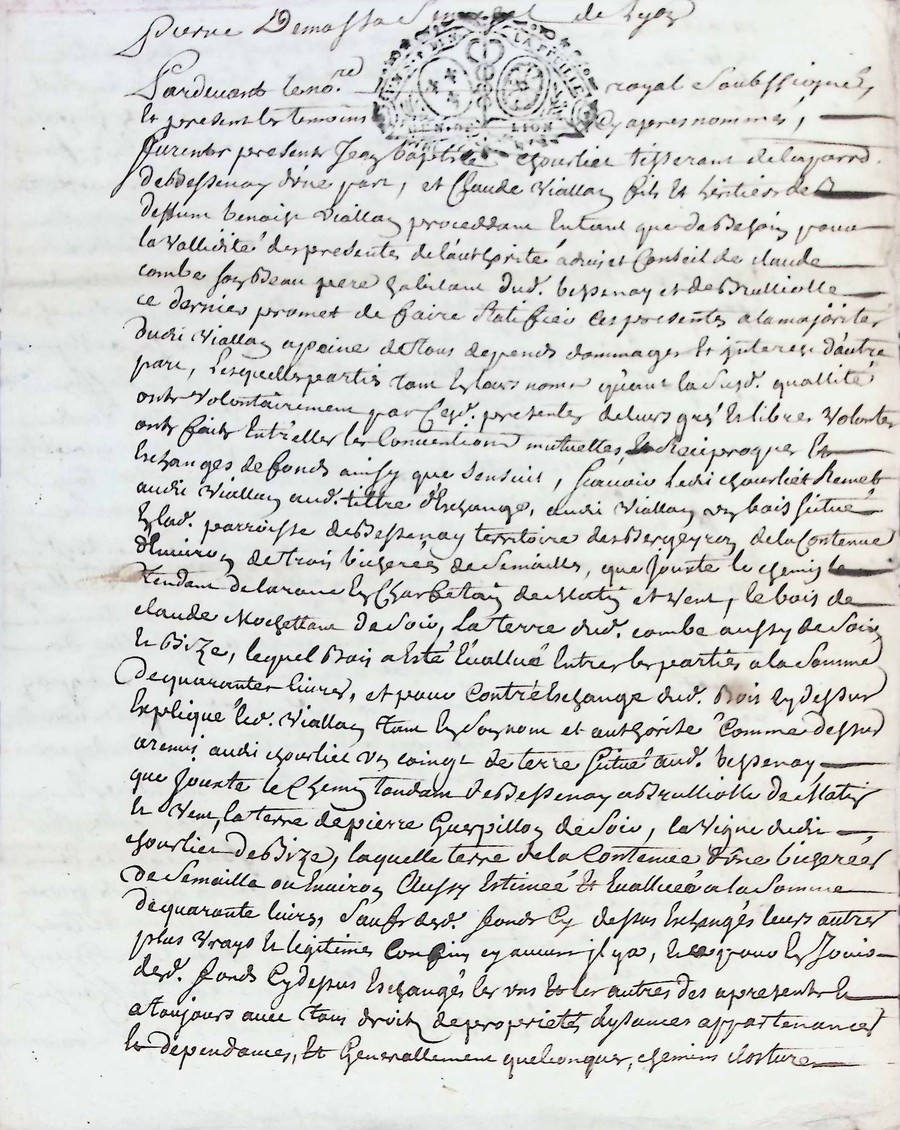 Pierre Demassa Senechal de Lyon
GEN. DE LION
Pardevant le no.re royal Soubssigné,
Et présent les temoins cy apres nommés,
furent present Jean baptiste chourliet tisserant de la parr.
de Bessenay d'une part, et Claude Viallon fils Et heritier de
deffunt benoist Viallon proceddant Entant que de Besoin pour
la Vallidité des presentes de l'authorité advis et Conseil de claude
combe son Beau pere habitant dud. bessenay et de Brulliolle
ce dernier promet de faire Ratiffier ces presentes a la majorité
dudit Viallon a peine de tous depends dommages Et interest d'autre
part, Lesquelles parties tant En leurs noms qu'en la Susd. quallité
ont Volontairement par Cesd. presentes de leurs gré Et libres Volontes
ont faits Entr'elles les Conventions mutuelles, Reciproques Et
Eschanges de fonds ainsy que s'ensuit, Scavoir Ledit chourliet Remet
audit Viallon aud. tiltre d'Eschange, audit Viallon un bois situé
En lad. parroisse de Bessenay territoire des Bergeyron de la Contenue
d'Environ de trois bicherées de Semailles, que Jouxte le chemin
tendant de la raue En Charbetain de Matin et Vent, le bois de
claude Mochettant de Soir, La terre dud. combe aussy de Soir
Et Bize, lequel Bois a Esté Evallué Entre les parties a la Somme
de quarantes livres, et pour Contré Eschange dud. Bois cy dessus
Expliqué led. Viallon tant En Son nom et authorité Comme dessus
a remis audit chourliet un coingt de terre situé aud. bessenay
que Jouxte le Chemin tandant de Bessenay a Brulliolle de Matin
Et Vent, la terre de pierre Guerpillon de Soir, la Vigne dudit
chourliet de Bize, laquelle terre de la Contenue d'une bicherées
de Semaille ou Environ Aussy Estimée Et Evalluée a la Somme
de quarante livres, Saufs desd. fonds Cy dessus Eschangés leurs autres
plus Vrays Et legitimes Confins sy aucuns il y a, Et pour En Jouir
desd. fonds Cy dessus Eschangés les uns Et les autres des apresent Et
a toujours avec tous droits de propriétés Aysances appartenances
Et dependances, Et Generallement quelconques, chemins closture